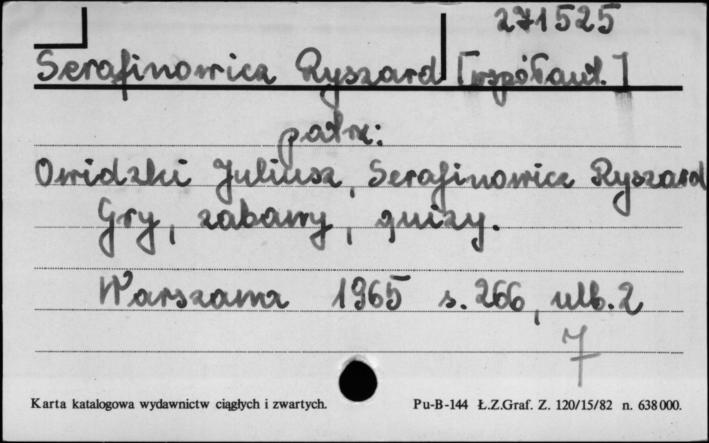 271525
Serafinowicz Ryszard [współaut.]
patrz:
Owidzki Juliusz, Serafinowicz Ryszard
Gry, zabawy, quizy.
Warszawa 1965 s. 266, nlb. 2
7
Karta katalogowa wydawnictw ciągłych i zwartych. Pu-B-144 Ł.Z.Graf. Z. 120/15/82 n. 638000.